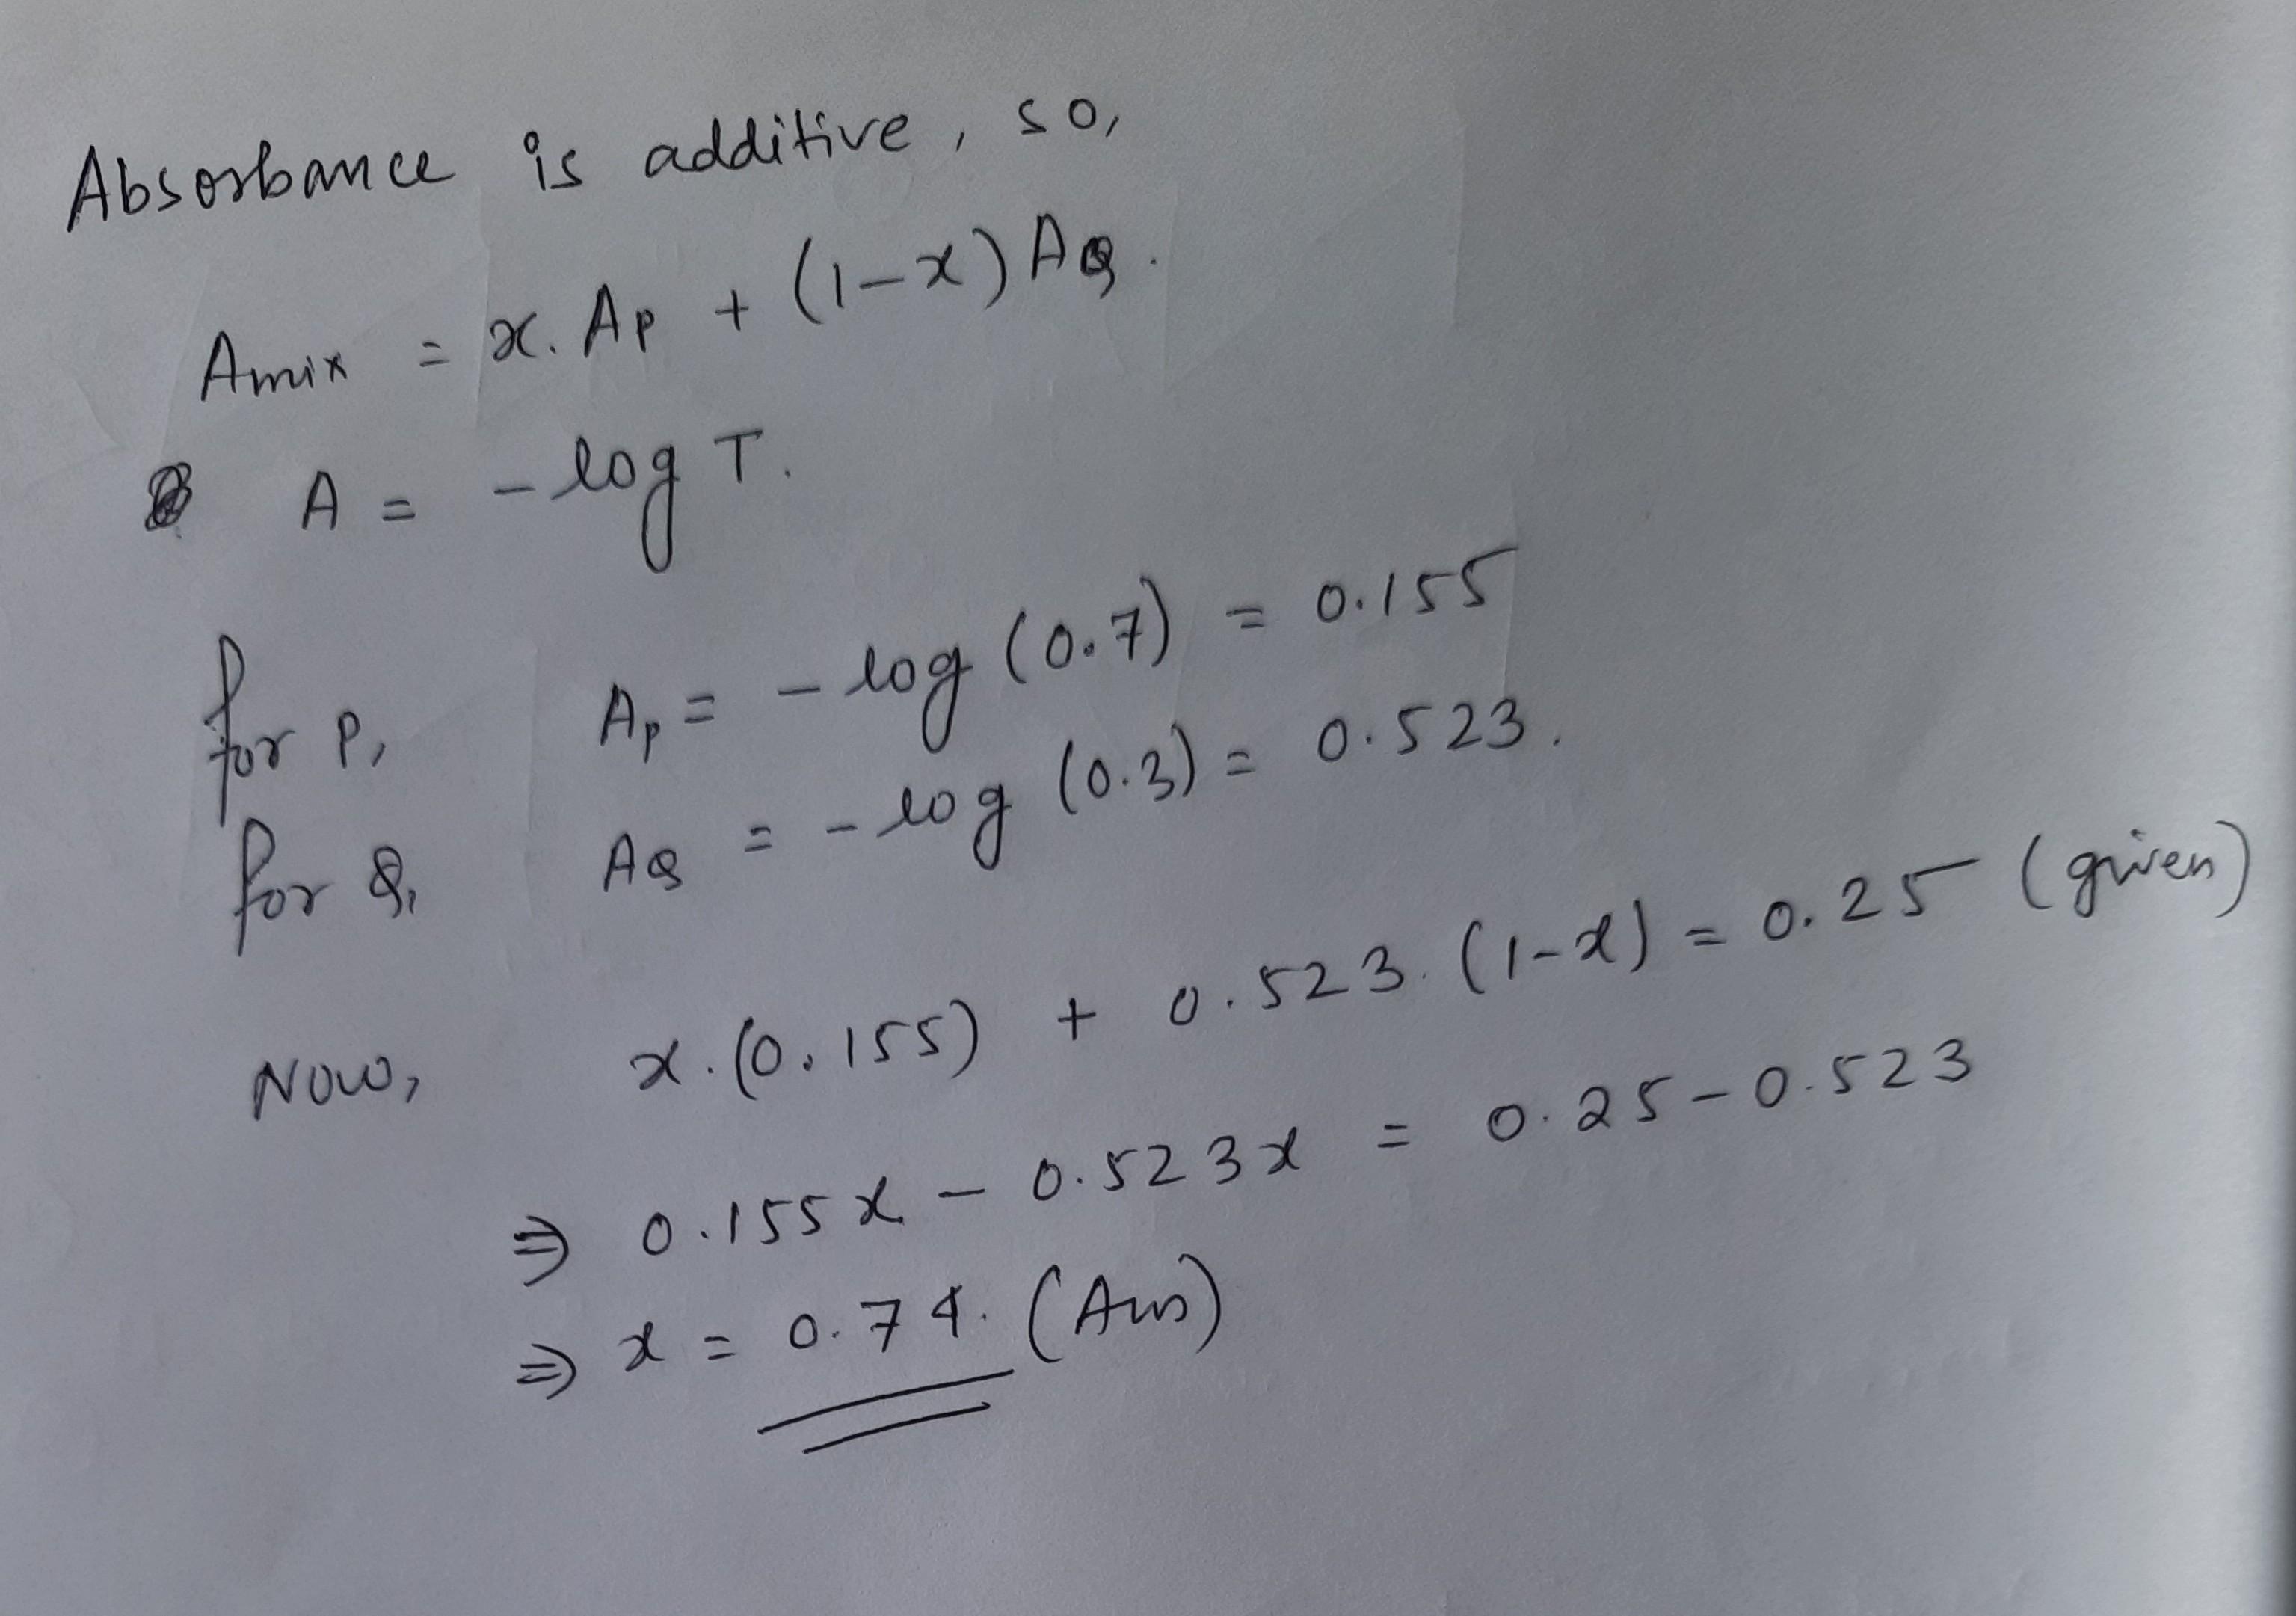 Absorbance is additive, so,
Amix = x. AP + (1-x) AQ.
A = - log T.
for P, AP = - log (0.7) = 0.155
for Q, AQ = - log (0.3) = 0.523.
Now, x.(0.155) + 0.523.(1-x) = 0.25 (given)
⇒ 0.155x - 0.523x = 0.25-0.523
⇒ x = 0.74. (Ans)